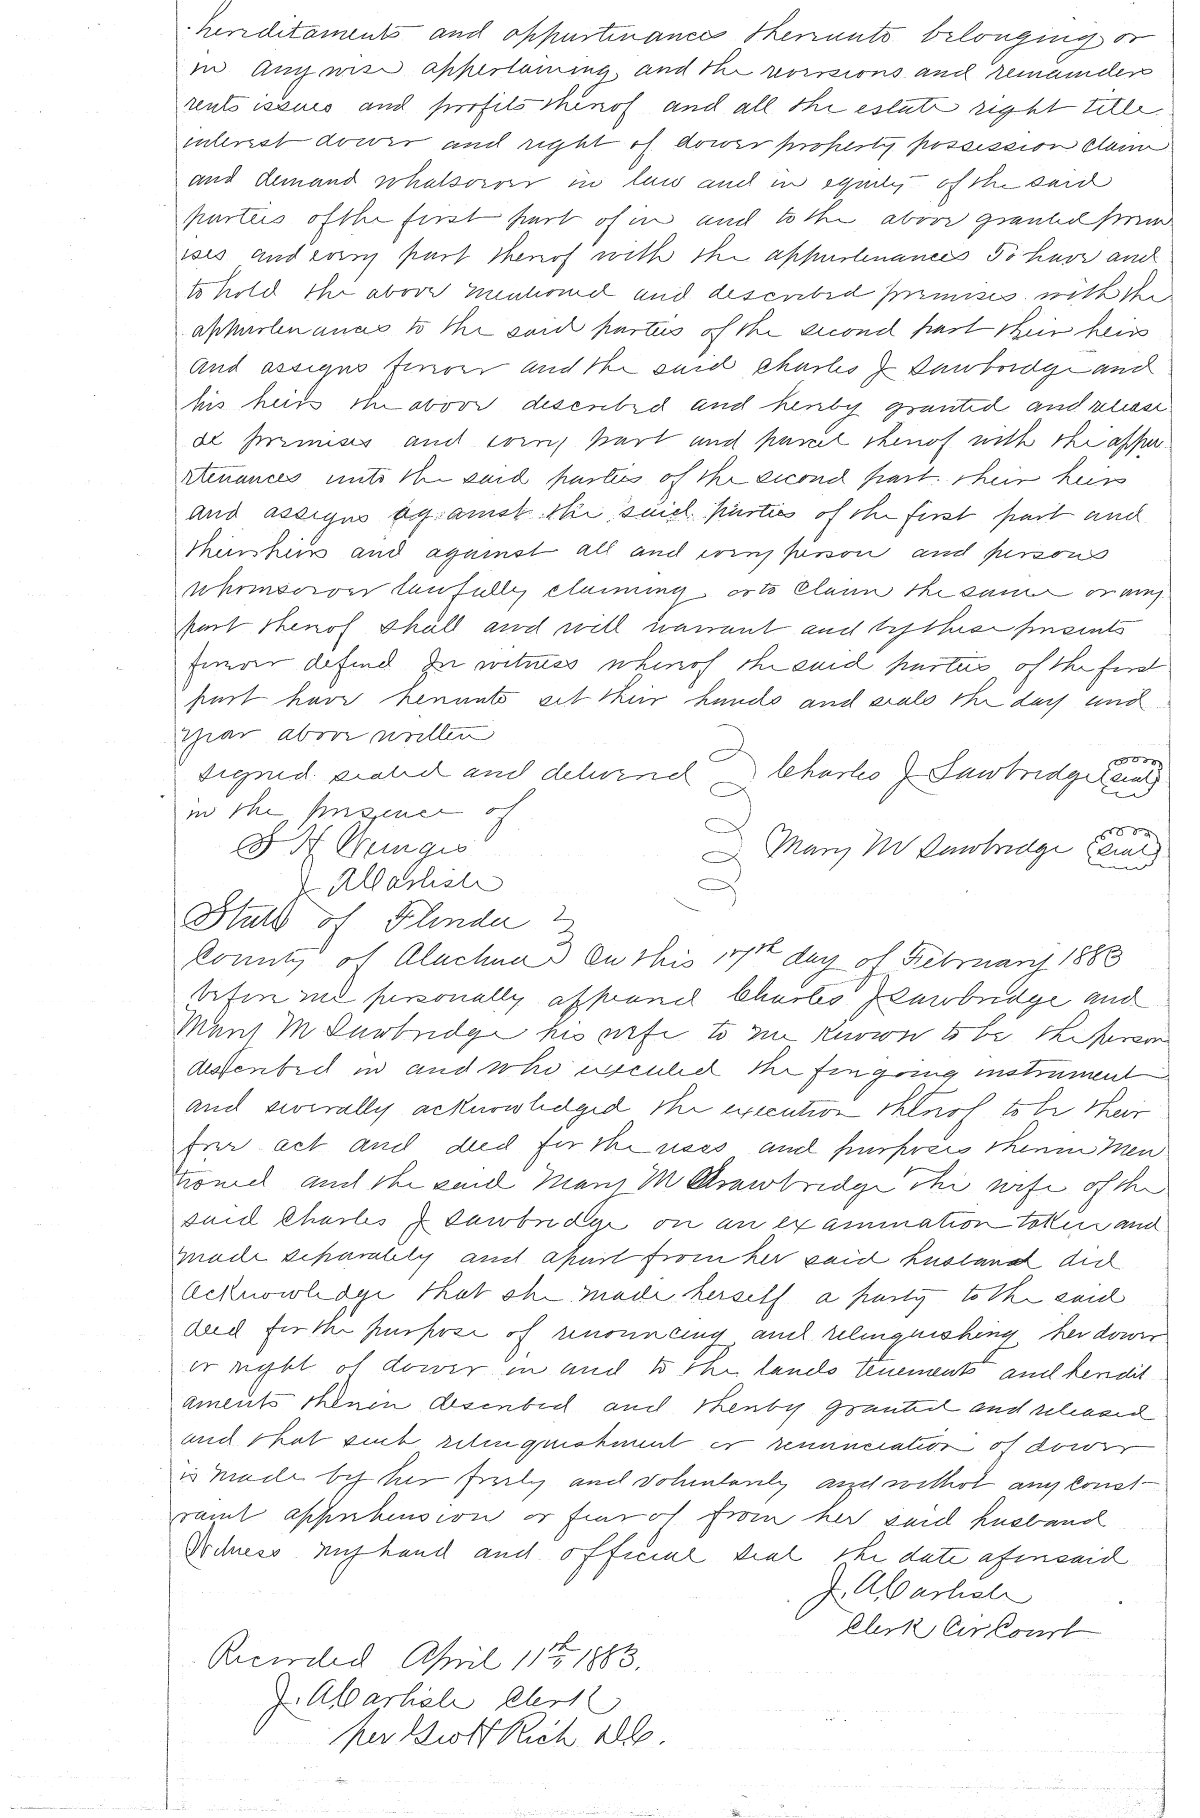 hereditaments and appurtenances thereunto belonging or
in any wise appertaining and the reversions and remainders
rents issues and profits thereof and all the estate right title
interest dower and right of dower property possession claim
and demand whatsoever in law and in equity of the said
parties of the first part of in and to the above granted prem
ises and every part thereof with the appurtenances To have and
to hold the above mentioned and described premises with the
appurtenances to the said parties of the second part their heirs
and assigns forever and the said Charles J Sawbridge and
his heirs the above described and hereby granted and release
ed premises and every part and parcel thereof with the appu
rtenances unto the said parties of the second part their heirs
and assigns against the said parties of the first part and
their heirs and against all and every person and persons
whomsoever lawfully claiming or to claim the same or any
part thereof shall and will warrant and by these presents
forever defend In witness whereof the said parties of the first
part have hereunto set their hands and seals the day and
year above written
signed sealed and delivered Charles J Sawbridge (seal)
in the presence of
H Mary M Sawbridge (seal)
J A Carlisle
State of Florida
County of Alachua On this 17th day of February 1883
before me personally appeared Charles J Sawbridge and
Mary M Sawbridge his wife to me known to be the person
described in and who executed the foregoing instrument
and severally acknowledged the execution thereof to be their
free act and deed for the uses and purposes therein Men
tioned and the said Mary M Srawbridge the wife of the
said Charles J Sawbridge on an examination taken and
made separately and apart from her said husband did
acknowledge that she made herself a party to the said
deed for the purpose of renouncing and relinquishing her dower
or right of dower in and to the lands tenements and heredit
aments therein described and thereby granted and released
and that such relinquishment or renunciation of dower
is made by her freely and voluntarily and without any Const
raint apprehension or fear of from her said husband
Witness my hand and official seal the date aforesaid
J. A. Carlisle
Clerk Cir Court
Recorded April 11th 1883.
J. A Carlisle Clerk
per Rich D.C.